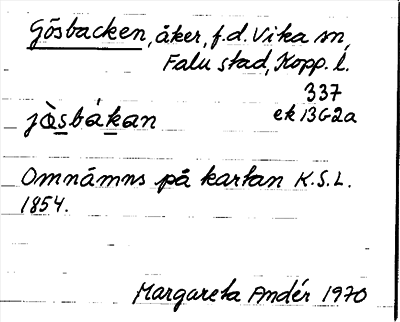 Gösbacken, åker, f.d. Vika sn,
Falu stad, Kopp. l.
337
ek 13G2a
jò̱s̱báḵan
Omnämns på kartan K.S.L.
1854.
Margareta Andér 1970